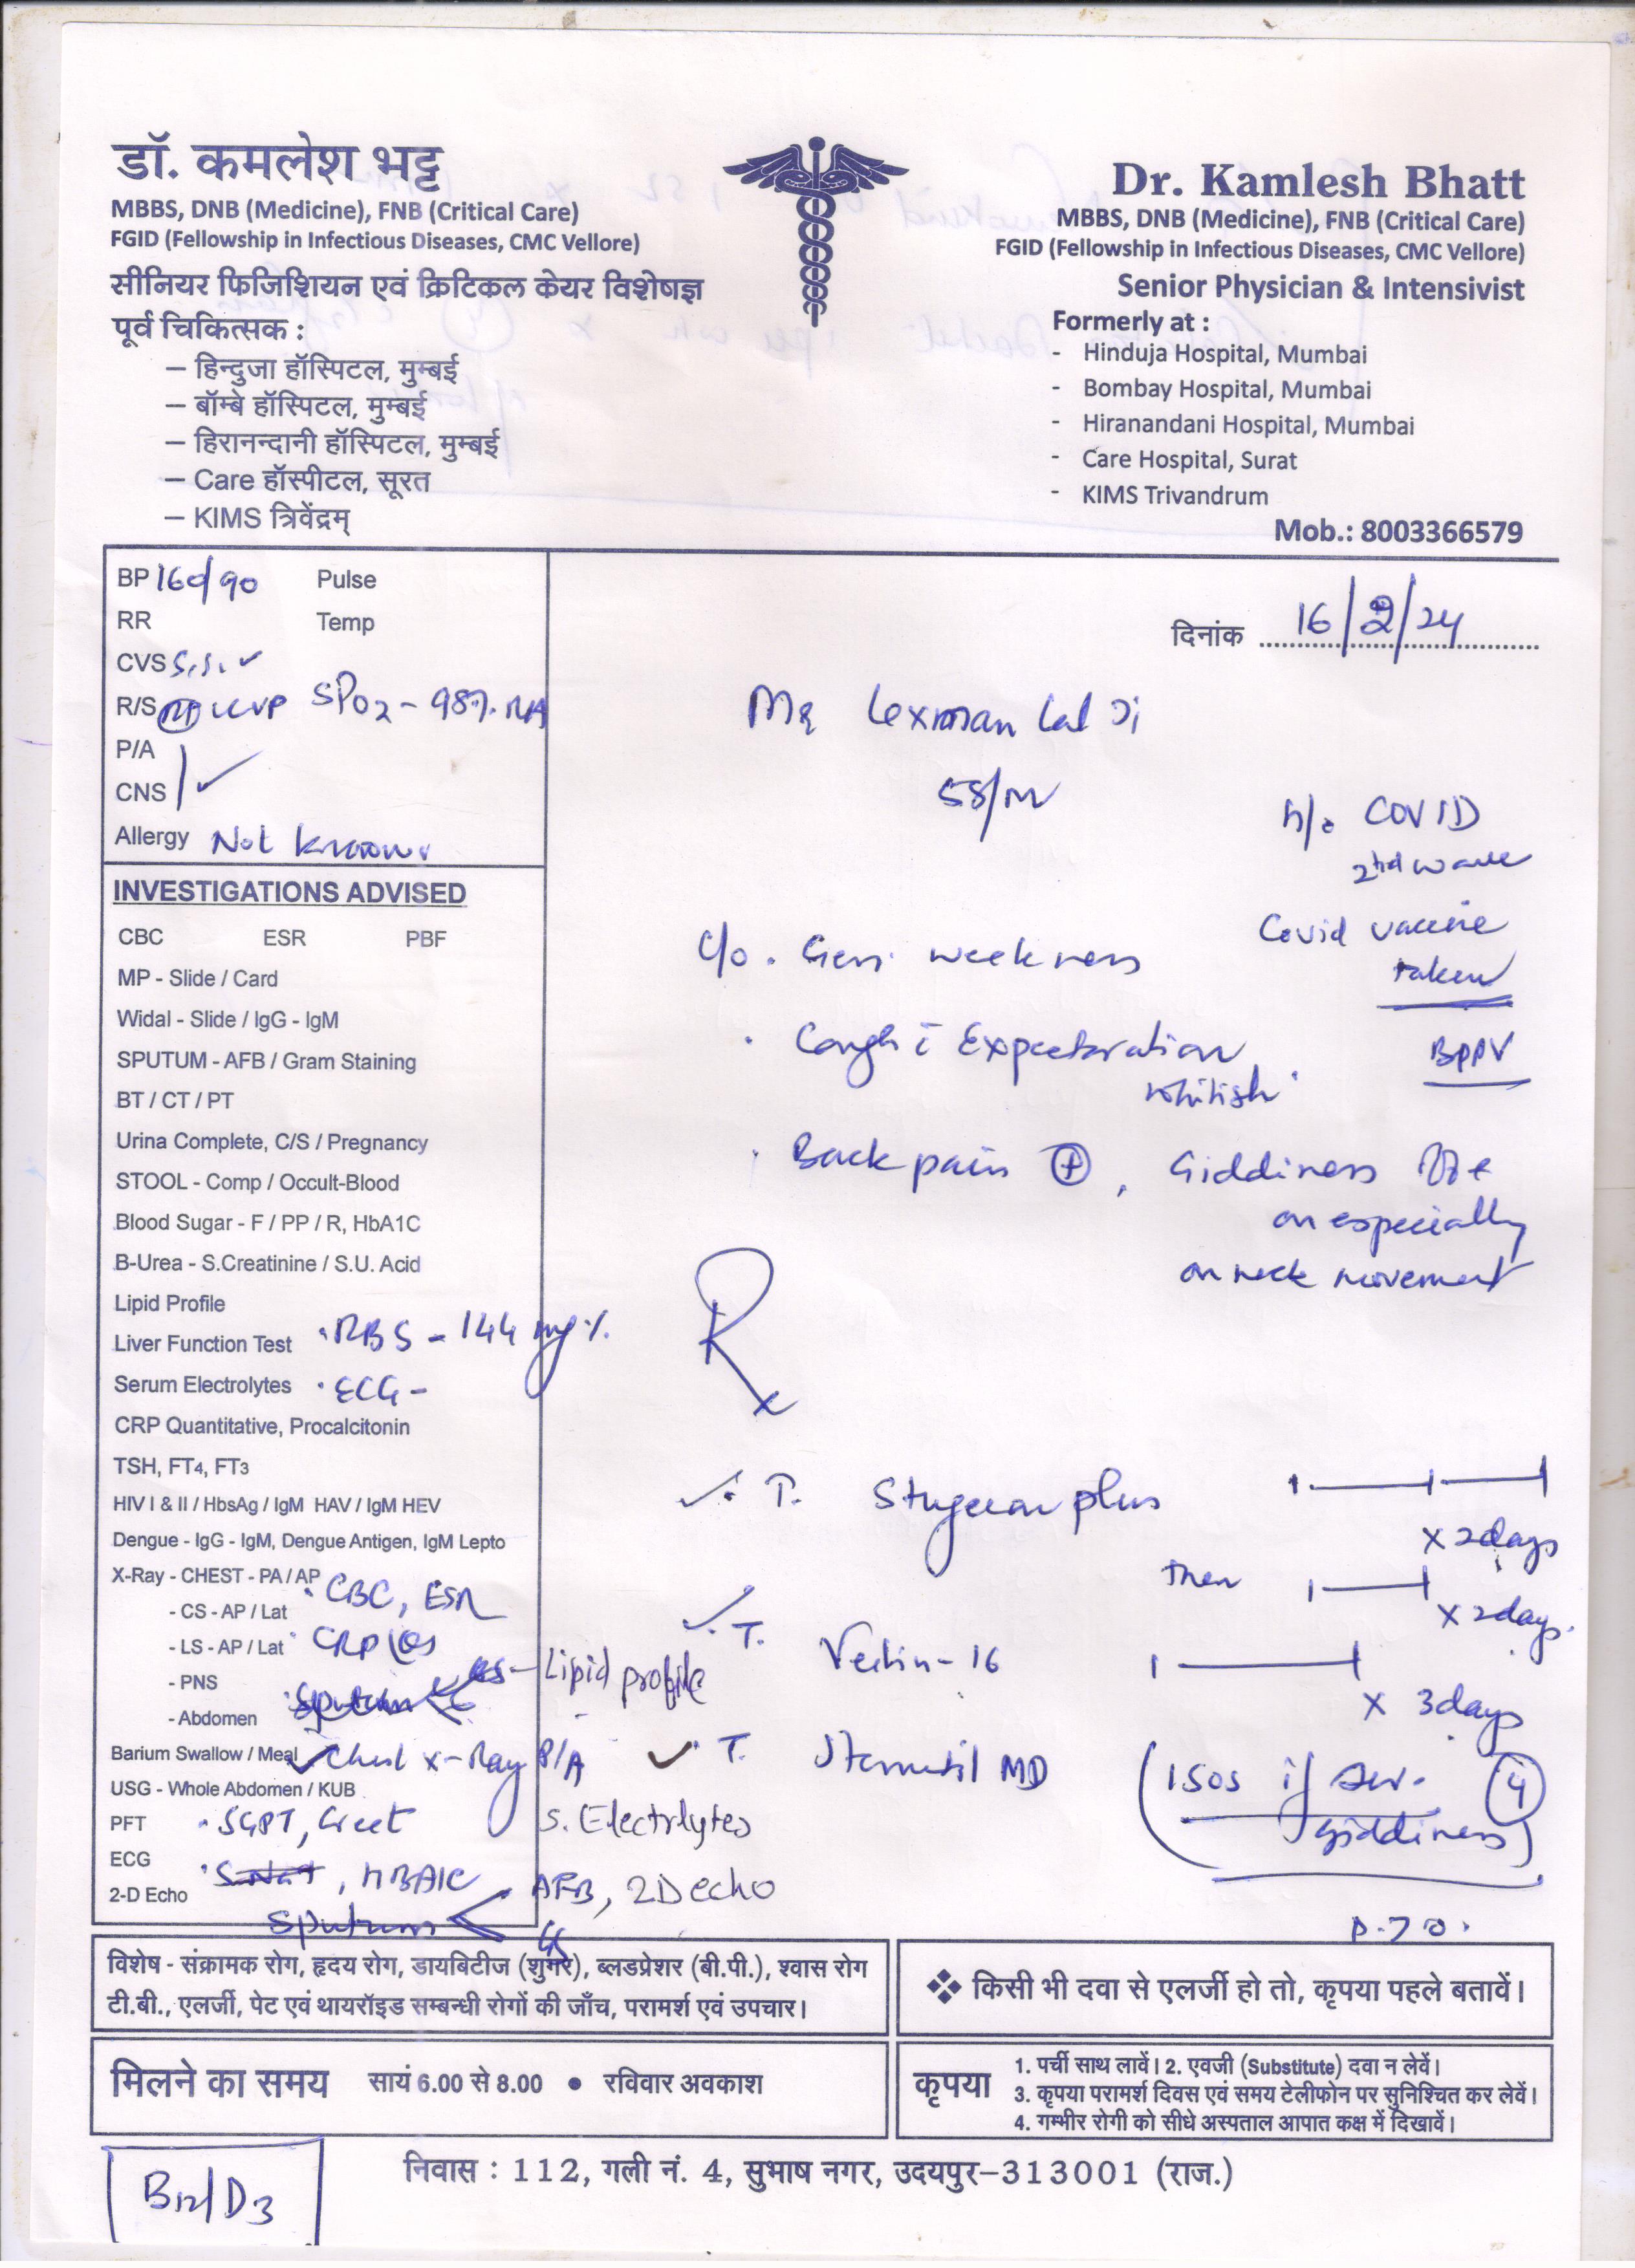 डॉ. कमलेश भट्ट
MBBS, DNB (Medicine), FNB (Critical Care)
FGID (Fellowship in Infectious Diseases, CMC Vellore)
सीनियर फिजिशियन एवं क्रिटिकल केयर विशेषज्ञ
पूर्व चिकित्सक :
– हिन्दुजा हॉस्पिटल, मुम्बई
– बॉम्बे हॉस्पिटल, मुम्बई
– हिरानन्दानी हॉस्पिटल, मुम्बई
– Care हॉस्पीटल, सूरत
– KIMS त्रिवेंद्रम्
Dr. Kamlesh Bhatt
MBBS, DNB (Medicine), FNB (Critical Care)
FGID (Fellowship in Infectious Diseases, CMC Vellore)
Senior Physician & Intensivist
Formerly at :
- Hinduja Hospital, Mumbai
- Bombay Hospital, Mumbai
- Hiranandani Hospital, Mumbai
- Care Hospital, Surat
- KIMS Trivandrum
Mob.: 8003366579
BP 160/90 Pulse
RR Temp
CVS S1S2 ✓
R/S SPO2 - 98% RA
P/A
CNS ✓
Allergy Not known
INVESTIGATIONS ADVISED
CBC ESR PBF
MP - Slide / Card
Widal - Slide / IgG - IgM
SPUTUM - AFB / Gram Staining
BT / CT / PT
Urina Complete, C/S / Pregnancy
STOOL - Comp / Occult-Blood
Blood Sugar - F / PP / R, HbA1C
B-Urea - S.Creatinine / S.U. Acid
Lipid Profile
Liver Function Test · RBS - 144 mg%
Serum Electrolytes · ECG -
CRP Quantitative, Procalcitonin
TSH, FT4, FT3
HIV I & II / HbsAg / IgM HAV / IgM HEV
Dengue - IgG - IgM, Dengue Antigen, IgM Lepto
X-Ray - CHEST - PA / AP · CBC, ESR
- CS - AP / Lat
- LS - AP / Lat · CRP
- PNS Lipid profile
- Abdomen
Barium Swallow / Meal ✓ Chest X-Ray P/A
USG - Whole Abdomen / KUB
PFT · SGPT, Creat S. Electrlytes
ECG
2-D Echo , HBA1C AFB, 2D echo
Sputum
दिनांक 16/2/24
Mr Lexman Lal Ji
58/M
h/o COVID
2nd wave
Covid vaccine
taken
BPPV
c/o · Gen. weekness
· Cough c̄ Expectoration
whitish
· Back pain ⊕, Giddiness
on especially
on neck movement
Rx
✓ · T. Stugeron plus 1 — 1 — 1
x 2days
then 1 — 1
x 2days.
✓ · T. Vertin-16 1 — 1
x 3days
✓ · T. Stemetil MD (1 SOS if sev. giddiness) (4)
P.T.O.
विशेष - संक्रामक रोग, हृदय रोग, डायबिटीज (शुगर), ब्लडप्रेशर (बी.पी.), श्वास रोग
टी.बी., एलर्जी, पेट एवं थायरॉइड सम्बन्धी रोगों की जाँच, परामर्श एवं उपचार।
❖ किसी भी दवा से एलर्जी हो तो, कृपया पहले बतावें।
मिलने का समय सायं 6.00 से 8.00 ● रविवार अवकाश
कृपया
1. पर्ची साथ लावें। 2. एवजी (Substitute) दवा न लेवें।
3. कृपया परामर्श दिवस एवं समय टेलीफोन पर सुनिश्चित कर लेवें।
4. गम्भीर रोगी को सीधे अस्पताल आपात कक्ष में दिखावें।
निवास : 112, गली नं. 4, सुभाष नगर, उदयपुर-313001 (राज.)
B12/D3